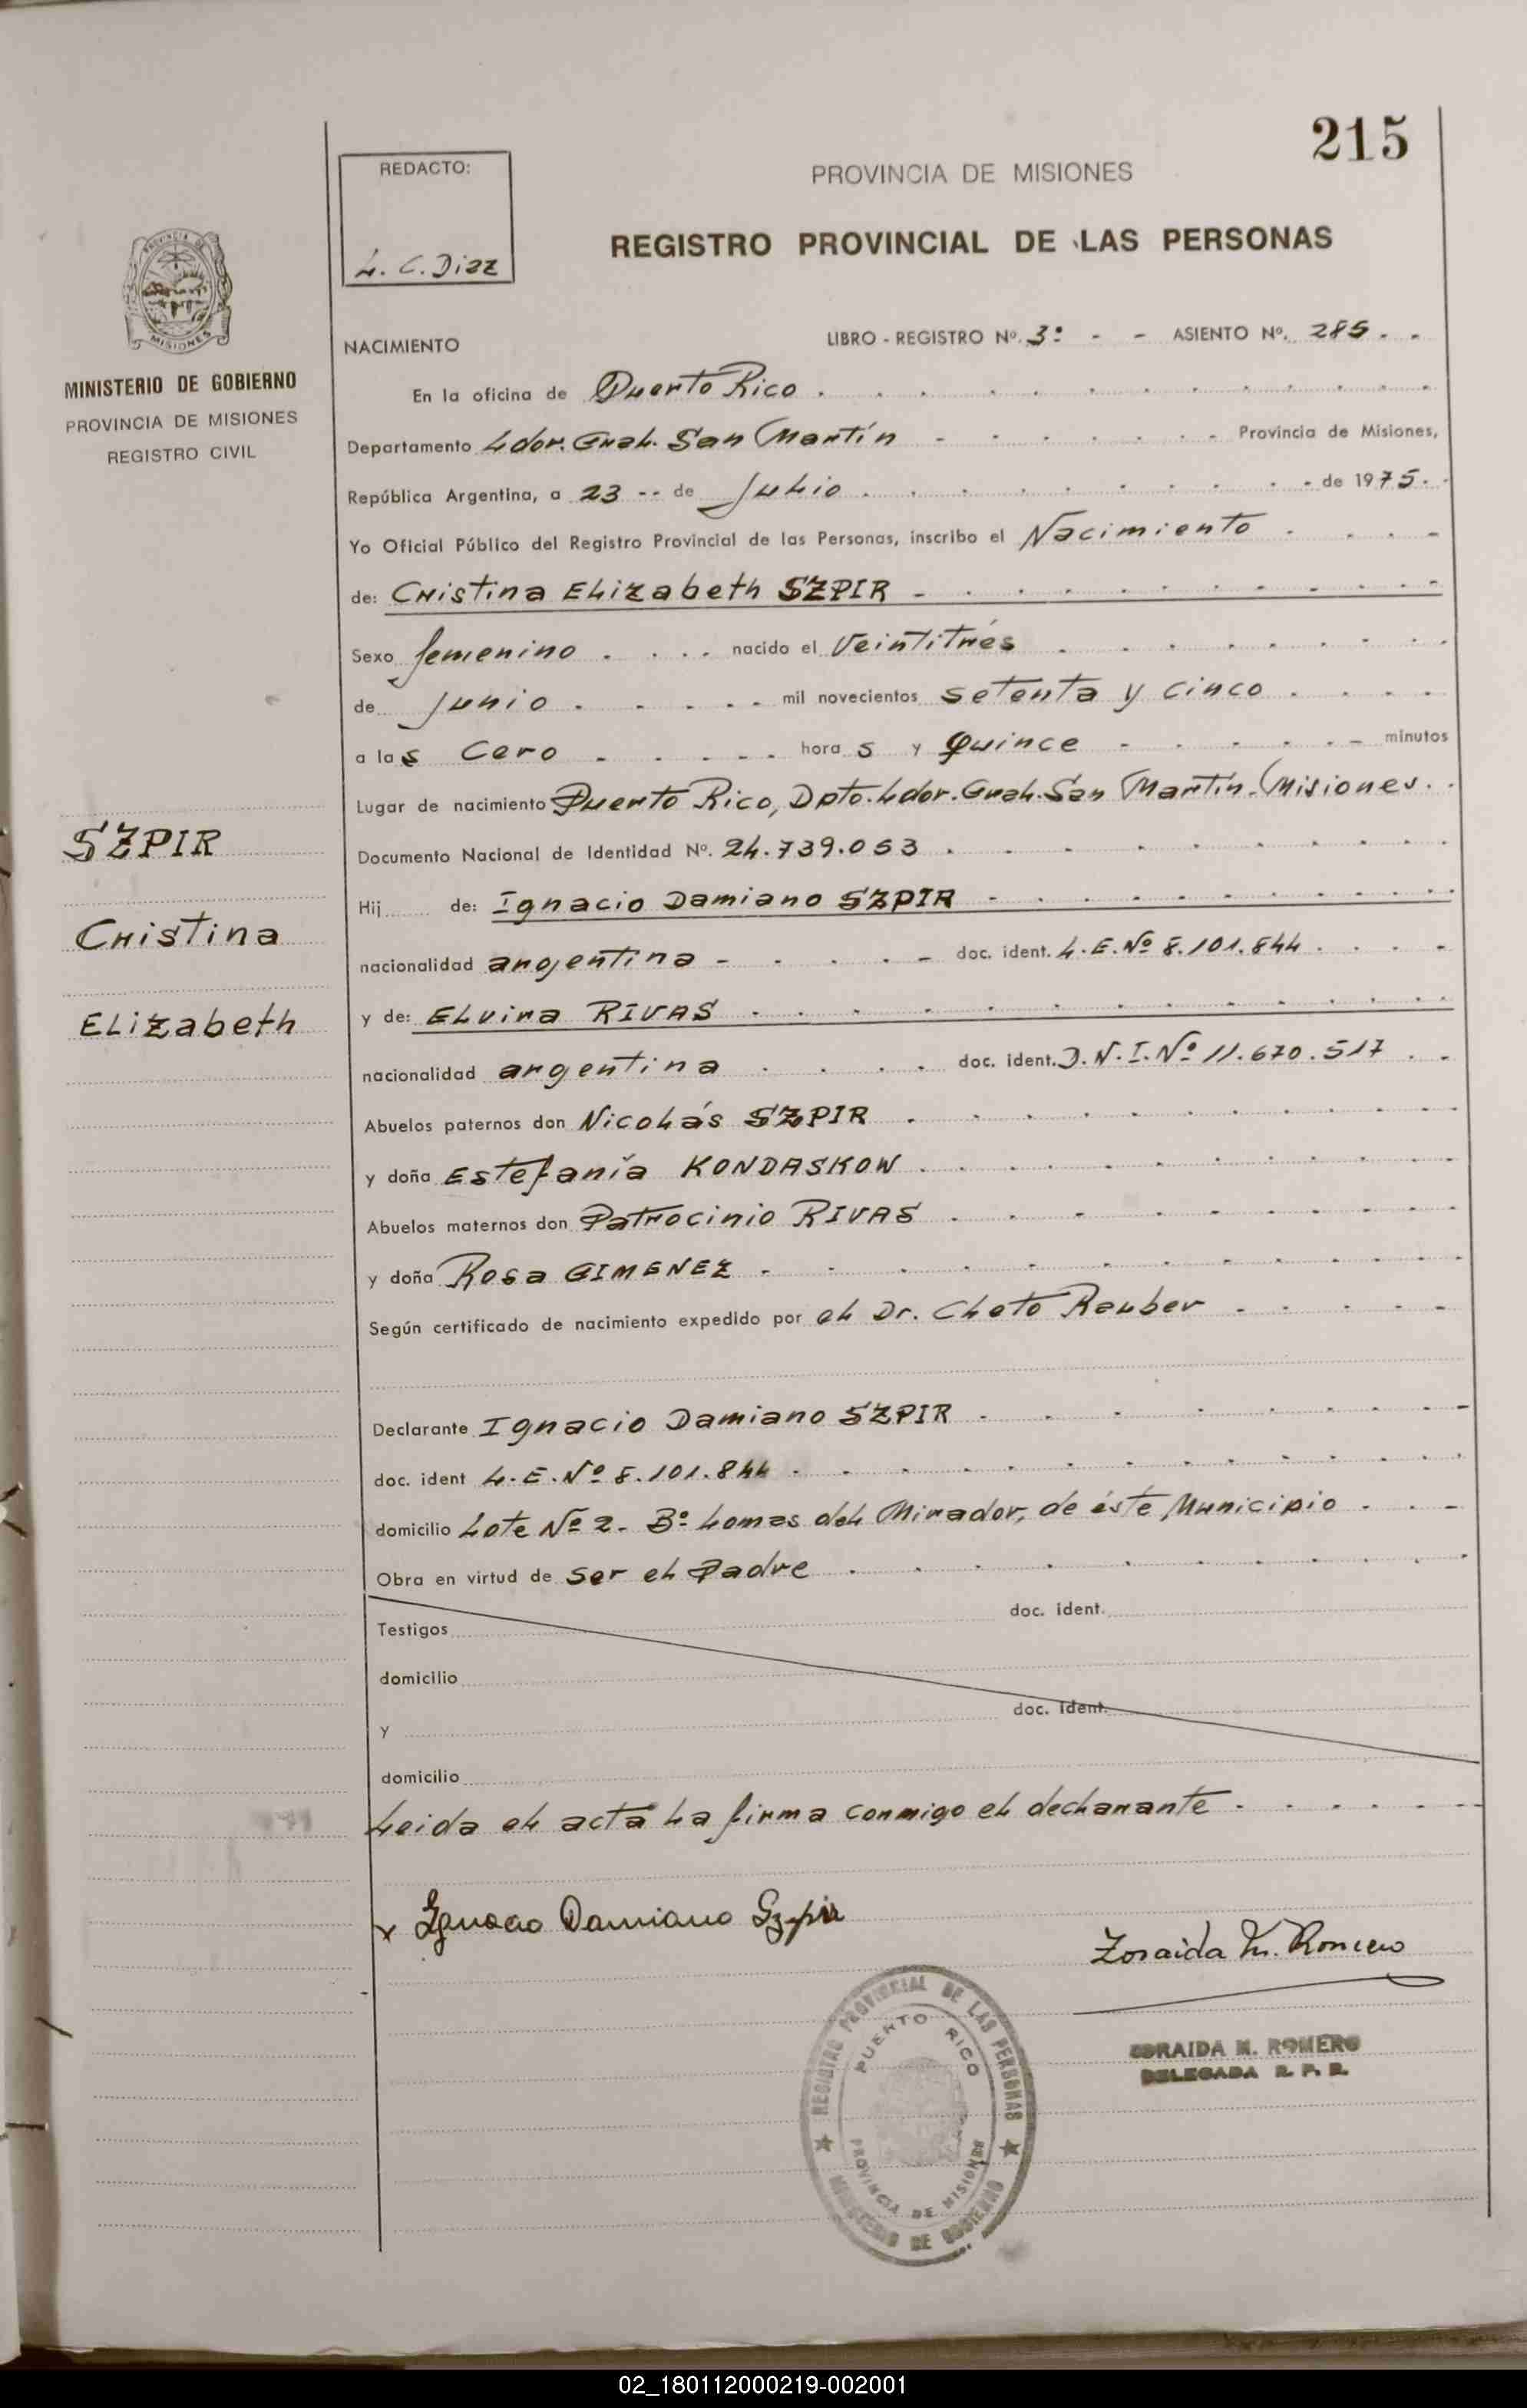 215
REDACTO:
L. C. Diaz
PROVINCIA DE MISIONES
REGISTRO PROVINCIAL DE LAS PERSONAS
PROVINCIA DE
MISIONES
MINISTERIO DE GOBIERNO
PROVINCIA DE MISIONES
REGISTRO CIVIL
NACIMIENTO LIBRO - REGISTRO Nº. 3º - - ASIENTO Nº. 285 . .
En la oficina de Puerto Rico
Departamento Ldor. Gral. San Martín Provincia de Misiones,
República Argentina, a 23 -- de Julio de 1975.
Yo Oficial Público del Registro Provincial de las Personas, inscribo el Nacimiento
de: Cristina Elizabeth SZPIR
Sexo femenino nacido el Veintitrés
de Junio mil novecientos setenta y cinco
a las Cero horas y Quince minutos
Lugar de nacimiento Puerto Rico, Dpto. Ldor. Gral. San Martín - Misiones.
SZPIR
Cristina
Elizabeth
Documento Nacional de Identidad Nº. 24.739.053
Hij de: Ignacio Damiano SZPIR
nacionalidad argentina doc. ident. L.E. Nº 8.101.844
y de: Elvira RIVAS
nacionalidad argentina doc. ident. D.N.I. Nº 11.670.517
Abuelos paternos don Nicolás SZPIR
y doña Estefanía KONDASKOW
Abuelos maternos don Patrocinio RIVAS
y doña Rosa GIMENEZ
Según certificado de nacimiento expedido por el Dr. Cleto Rauber
Declarante Ignacio Damiano SZPIR
doc. ident L.E. Nº 8.101.844
domicilio Lote Nº 2 - Bº Lomas del Mirador, de éste Municipio
Obra en virtud de ser el Padre
Testigos doc. ident.
domicilio
y doc. ident.
domicilio
Leida el acta la firma conmigo el declarante
x Ignacio Damiano Szpir
Zoraida M. Romero
ZORAIDA M. ROMERO
DELEGADA R. P. P.
REGISTRO PROVINCIAL DE LAS PERSONAS
PUERTO RICO
PROVINCIA DE MISIONES
MINISTERIO DE GOBIERNO
02_180112000219-002001